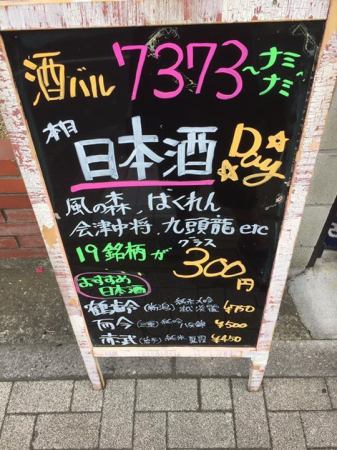 酒バル 7373〜ナミナミ
本日 日本酒 Day
風の森、ばくれん
会津中将、九頭龍 etc
19銘柄が グラス 300円
おすすめ日本酒
鶴齢 (新潟) 純米大吟 ¥750
而今 (三重) 純吟 ¥500
赤武 (岩手) 純米 ¥450